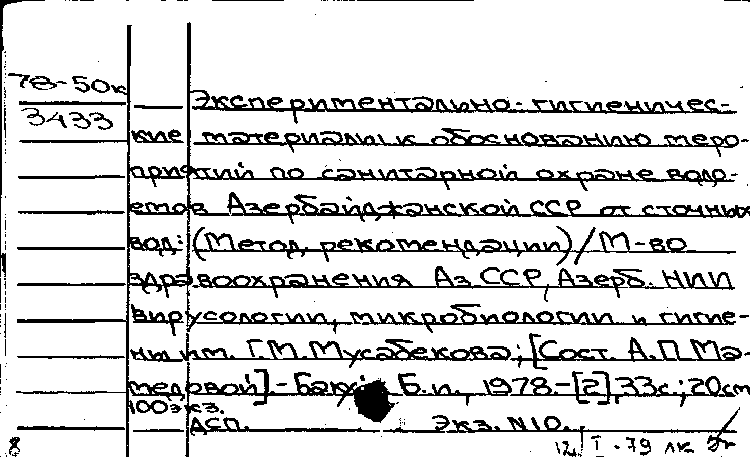 78-50к
3433
Экспериментально-гигиеничес-
кие материалы к обоснованию меро-
приятий по санитарной охране водо-
емов Азербайджанской ССР от сточных
вод: (Метод. рекомендации) / М-во
здравоохранения Аз ССР, Азерб. НИИ
вирусологии, микробиологии и гигие-
ны им. Г.М. Мусабекова; [Сост. А.П. Ма-
медовой]. - Баку: Б.и., 1978. - [2], 33с.; 20см
100экз.
ДСП. Экз. N10.
8 I-79